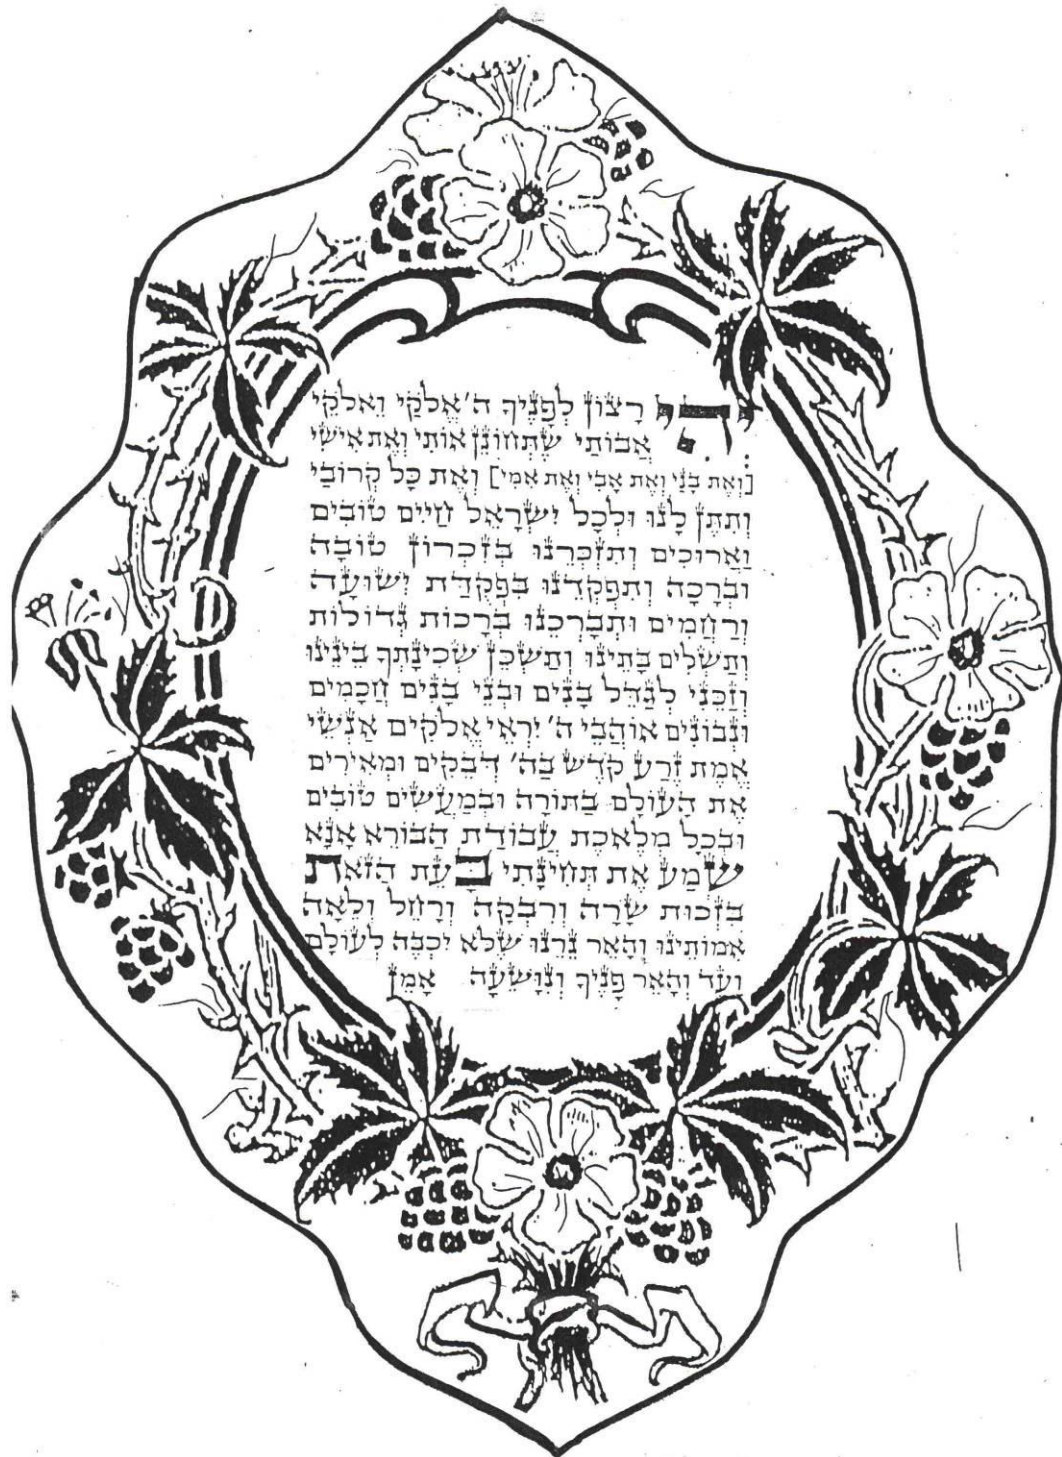 יְהִי רָצוֹן לְפָנֶיךָ ה' אֱלֹקַי וֵאלֹקֵי
אֲבוֹתַי שֶׁתְּחוֹנֵן אוֹתִי וְאֶת אִישִׁי
[וְאֶת בָּנַי וְאֶת אָבִי וְאֶת אִמִּי] וְאֶת כָּל קְרוֹבַי
וְתִתֶּן לָנוּ וּלְכָל יִשְׂרָאֵל חַיִּים טוֹבִים
וַאֲרוּכִים וְתִזְכְּרֵנוּ בְּזִכְרוֹן טוֹבָה
וּבְרָכָה וְתִפְקְדֵנוּ בִּפְקֻדַּת יְשׁוּעָה
וְרַחֲמִים וּתְבָרְכֵנוּ בְּרָכוֹת גְּדוֹלוֹת
וְתַשְׁלִים בָּתֵּינוּ וְתַשְׁכֵּן שְׁכִינָתְךָ בֵּינֵינוּ
וְזַכֵּנִי לְגַדֵּל בָּנִים וּבְנֵי בָנִים חֲכָמִים
וּנְבוֹנִים אוֹהֲבֵי ה' יִרְאֵי אֱלֹקִים אַנְשֵׁי
אֱמֶת זֶרַע קֹדֶשׁ בַּה' דְּבֵקִים וּמְאִירִים
אֶת הָעוֹלָם בַּתּוֹרָה וּבְמַעֲשִׂים טוֹבִים
וּבְכָל מְלֶאכֶת עֲבוֹדַת הַבּוֹרֵא אָנָּא
שְׁמַע אֶת תְּחִינָּתִי בָּעֵת הַזֹּאת
בִּזְכוּת שָׂרָה וְרִבְקָה וְרָחֵל וְלֵאָה
אִמּוֹתֵינוּ וְהָאֵר נֵרֵנוּ שֶׁלֹּא יִכְבֶּה לְעוֹלָם
וָעֶד וְהָאֵר פָּנֶיךָ וְנִוָּשֵׁעָה אָמֵן